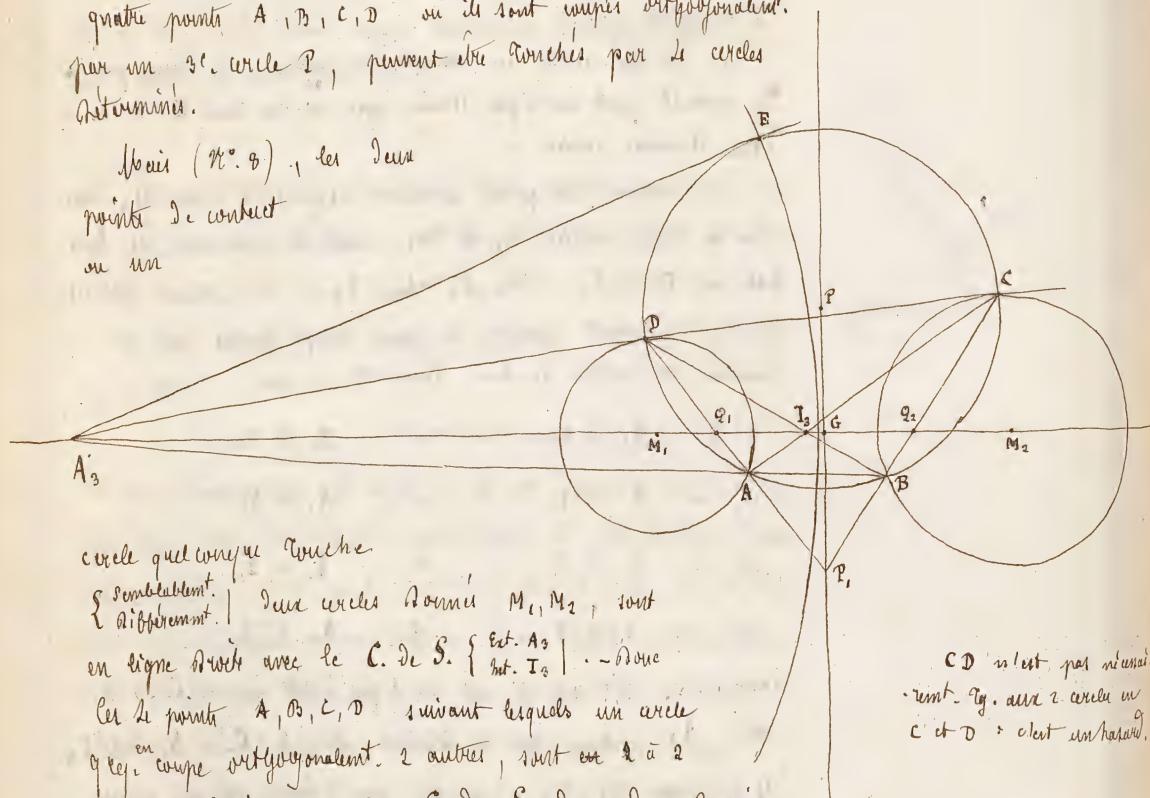 quatre points A, B, C, D où ils sont coupés orthogonalemt.
par un 3e. cercle P, peuvent être touchés par 4 cercles
déterminés.
Mais (N°. 8), les deux
points de contact
où un
E
C
P
D
Q1 I3 G Q2
M1 M2
A3
A B
P1
cercle quelconque touche
{ Semblablemt.
Différemmt. | deux cercles donnés M1, M2, sont
en ligne droite avec le C. de S. { Ext. A3
Int. I3 | . - Donc
les 4 points A, B, C, D suivant lesquels un cercle
en
coupe orthogonalemt. 2 autres, sont 2 à 2
CD n'est pas nécessai
remt. Tg. aux 2 cercles en
C et D : c'est un hasard.